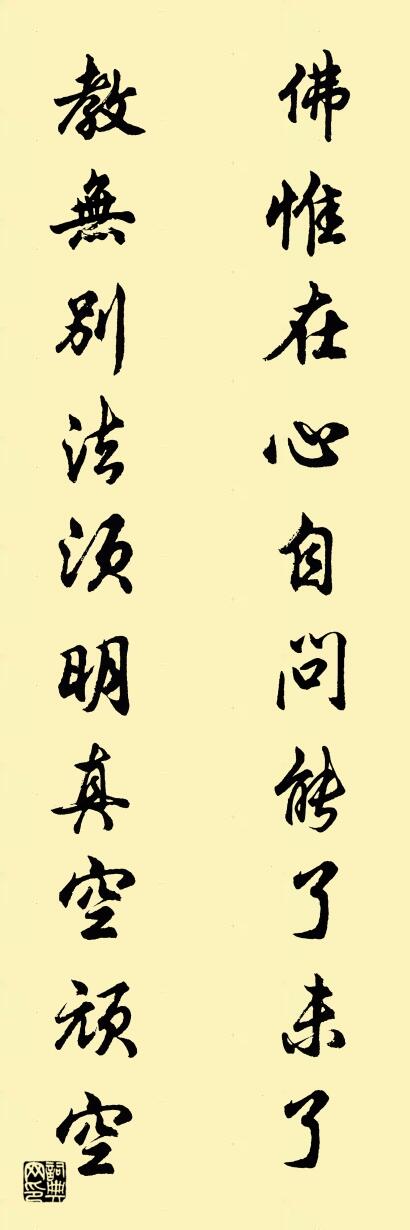 佛惟在心自問能了未了
教無別法須明真空頑空
詞典网印